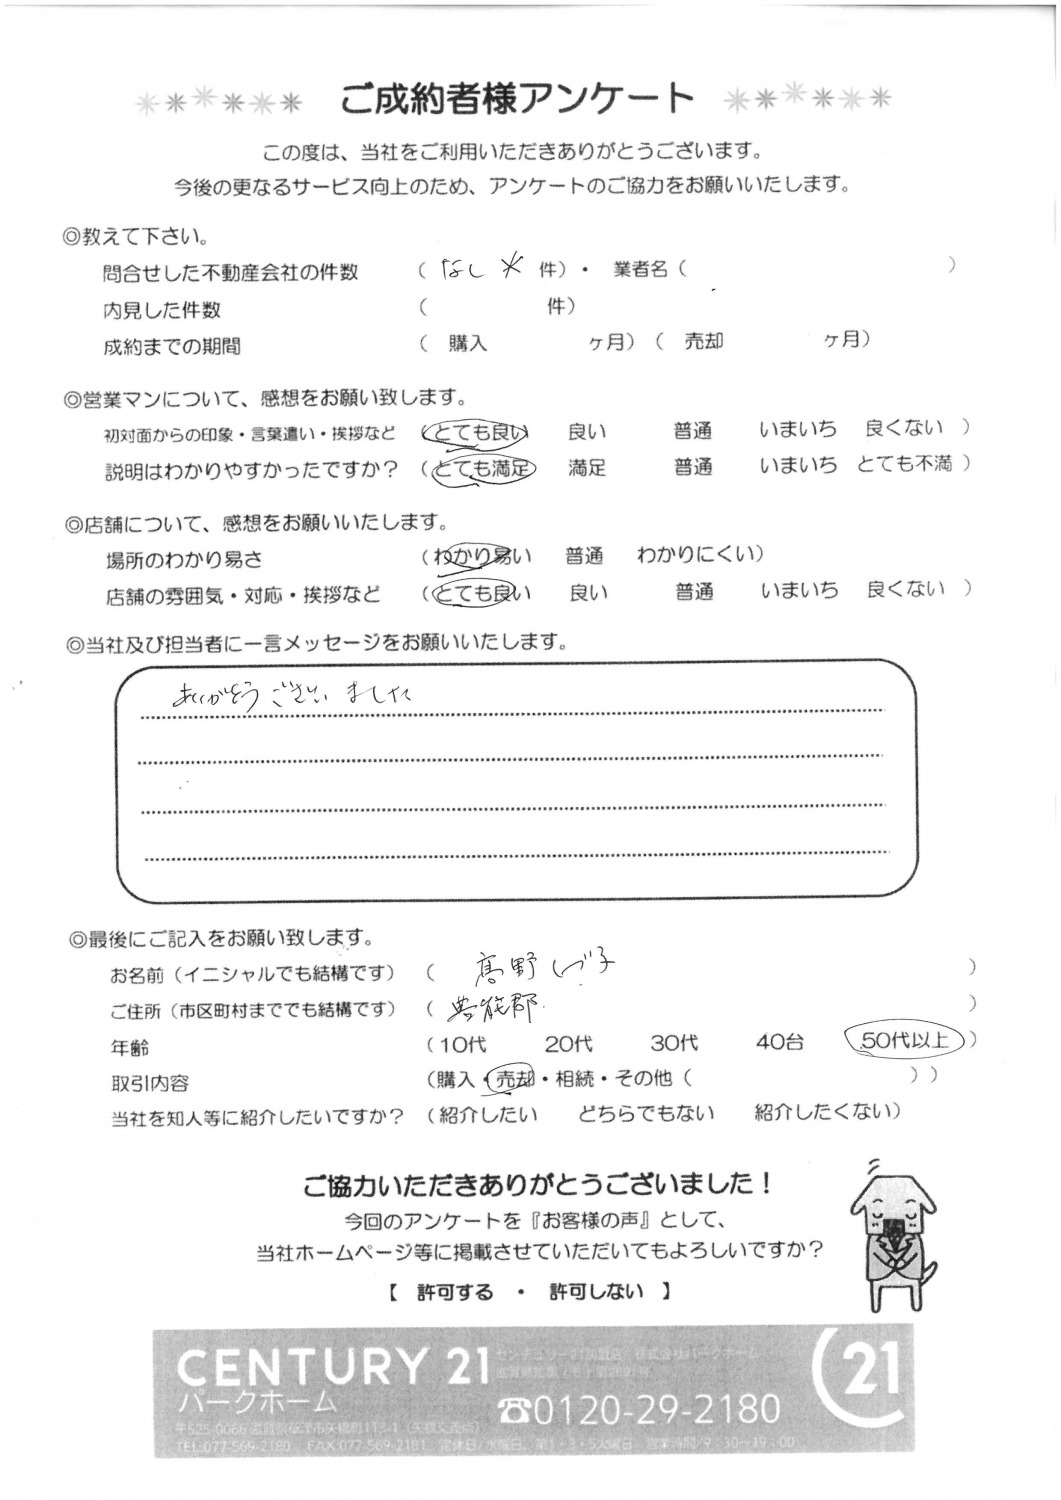 ご成約者様アンケート
この度は、当社をご利用いただきありがとうございます。
今後の更なるサービス向上のため、アンケートのご協力をお願いいたします。
◎教えて下さい。
問合せした不動産会社の件数 （ なし 件）・ 業者名（ ）
内見した件数 （ 件）
成約までの期間 （ 購入 ヶ月）（ 売却 ヶ月）
◎営業マンについて、感想をお願い致します。
初対面からの印象・言葉遣い・挨拶など （とても良い 良い 普通 いまいち 良くない ）
説明はわかりやすかったですか？ （とても満足 満足 普通 いまいち とても不満 ）
◎店舗について、感想をお願いいたします。
場所のわかり易さ （わかり易い 普通 わかりにくい）
店舗の雰囲気・対応・挨拶など （とても良い 良い 普通 いまいち 良くない ）
◎当社及び担当者に一言メッセージをお願いいたします。
ありがとうございました
◎最後にご記入をお願い致します。
お名前（イニシャルでも結構です） （ 髙野しづ子 ）
ご住所（市区町村まででも結構です） （ 豊能郡 ）
年齢 （10代 20代 30代 40台 50代以上 ）
取引内容 （購入・売却・相続・その他（ ））
当社を知人等に紹介したいですか？ （紹介したい どちらでもない 紹介したくない）
ご協力いただきありがとうございました！
今回のアンケートを『お客様の声』として、
当社ホームページ等に掲載させていただいてもよろしいですか？
【 許可する ・ 許可しない 】
CENTURY 21 センチュリー21加盟店 株式会社パークホーム
パークホーム
☎0120-29-2180
21
TEL:077-569-2180 FAX:077-569-2181 定休日/水曜日、第1・3・5火曜日 営業時間/9：30～19：00